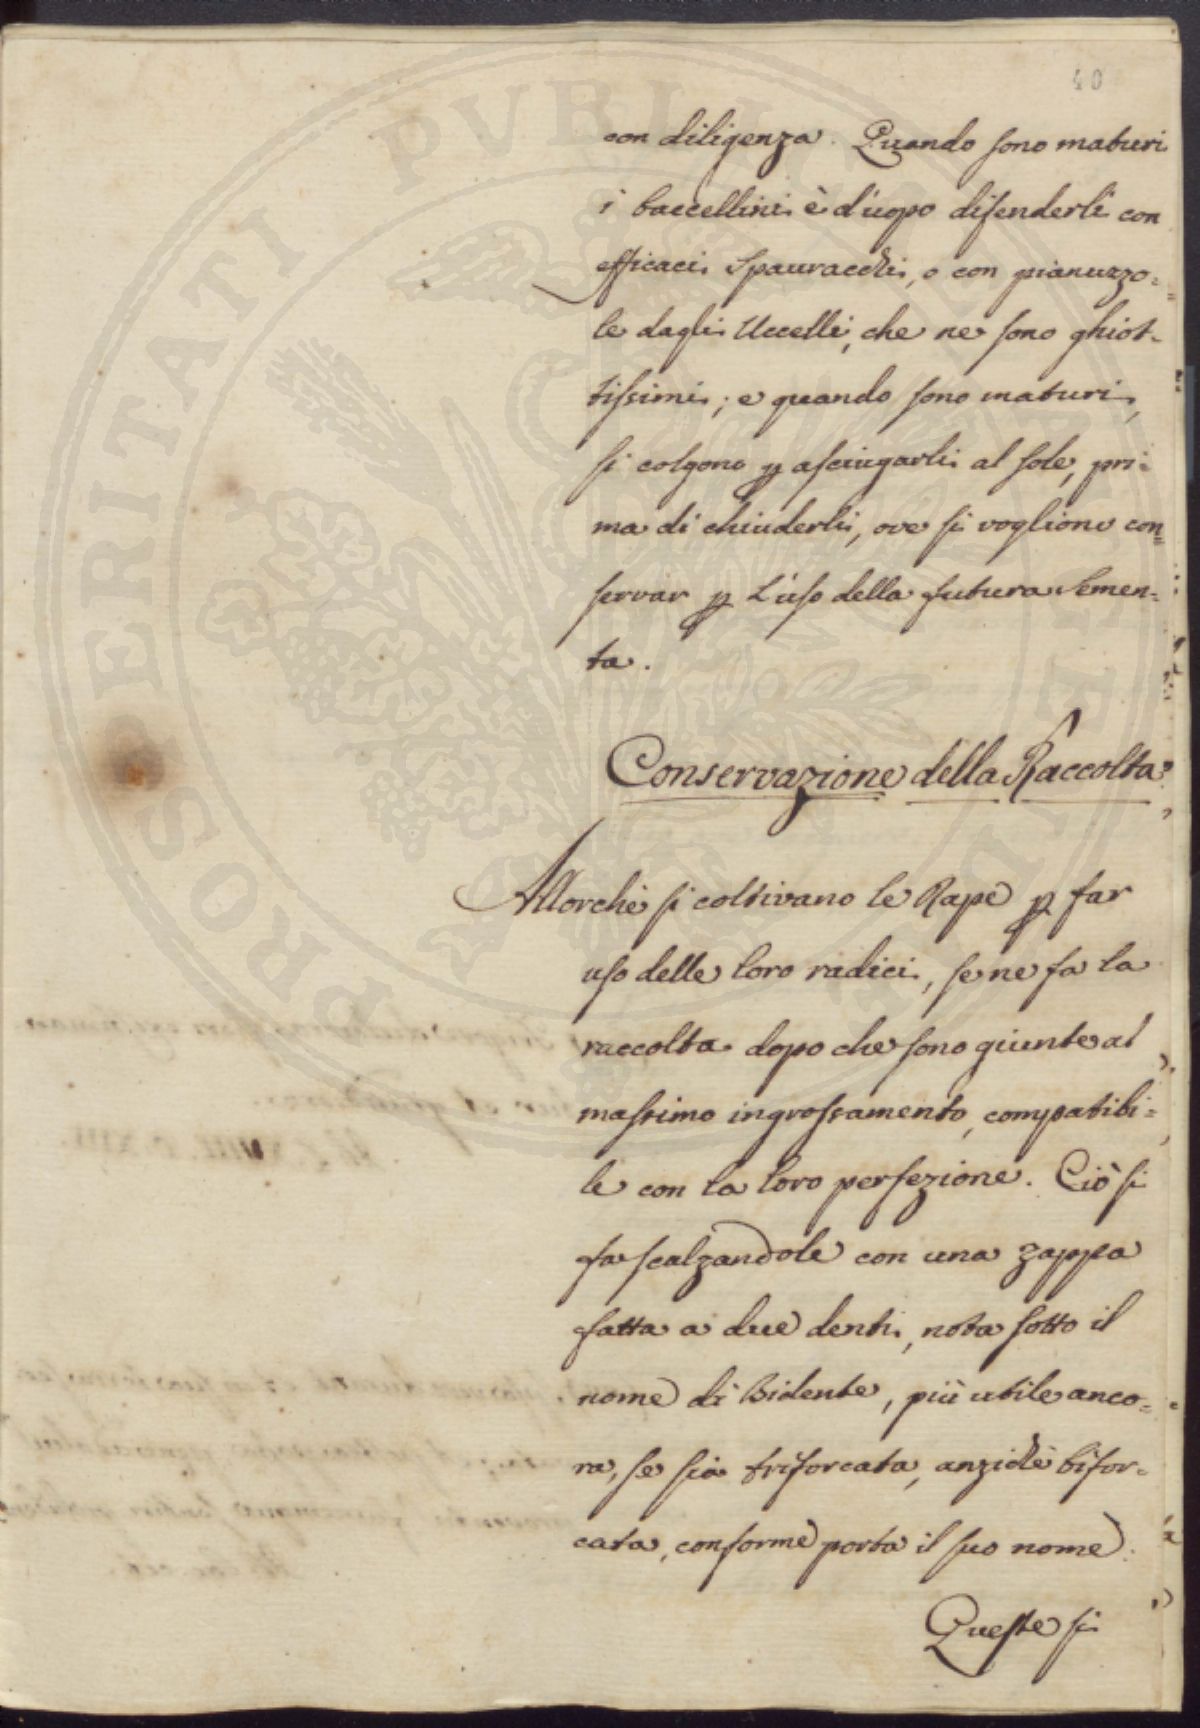 40
con diligenza. Quando sono maturi
i baccellini è d'uopo difenderli con
efficaci Spauracchi, o con pianuzzo=
le dagli Uccelli, che ne sono ghiot-
tissimi; e quando sono maturi,
si colgono p asciugarli al sole, pri-
ma di chiuderli, ove si vogliono con=
servar p l'uso della futura Semen-
ta.
Conservazione della Raccolta
Allorchè si coltivano le Rape p far
uso delle loro radici, se ne fa la
raccolta dopo che sono giunte al
massimo ingrossamento, compatibi=
le con la loro perfezione. Ciò si
fa scalzandole con una zappa
fatta a due denti, nota sotto il
nome di Bidente, più utile anco=
ra, se sia triforcata, anzichè bifor-
cata, conforme porta il suo nome.
Queste si
PROSPERITATI PUBLICAE